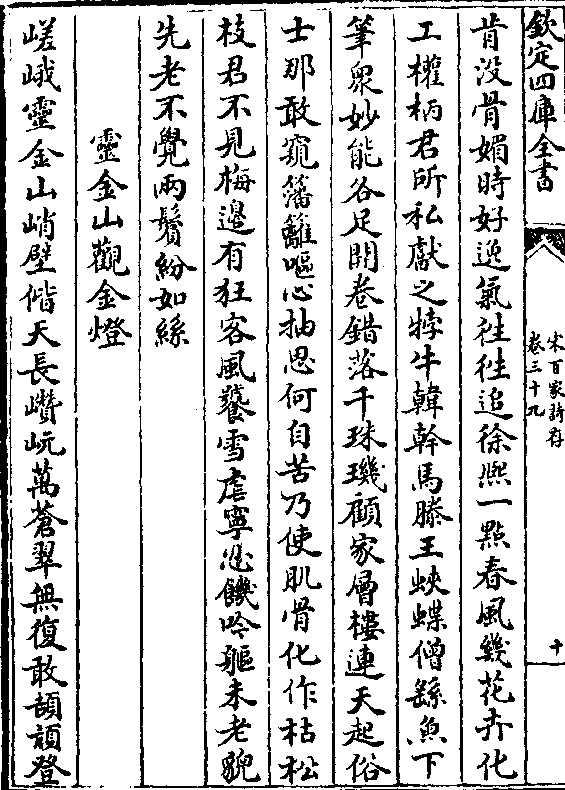 欽定四庫全書
宋百家詩存
卷三十九
十
肯没骨媚時好逸氣往往追徐熈一點春風幾花卉化
工權柄君所私獻之㹀牛韓幹馬滕王蛺蝶僧繇魚下
筆衆妙能各足開卷錯落千珠璣顧家層樓連天起俗
士那敢窺籓籬嘔心抽思何自苦乃使肌骨化作枯松
枝君不見梅邉有狂客風饕雪虐寧忍饑吟軀未老貌
先老不覺兩鬢紛如絲
靈金山觀金燈
嵯峨靈金山峭壁偕天長巑岏萬蒼翠無復敢頡頏登